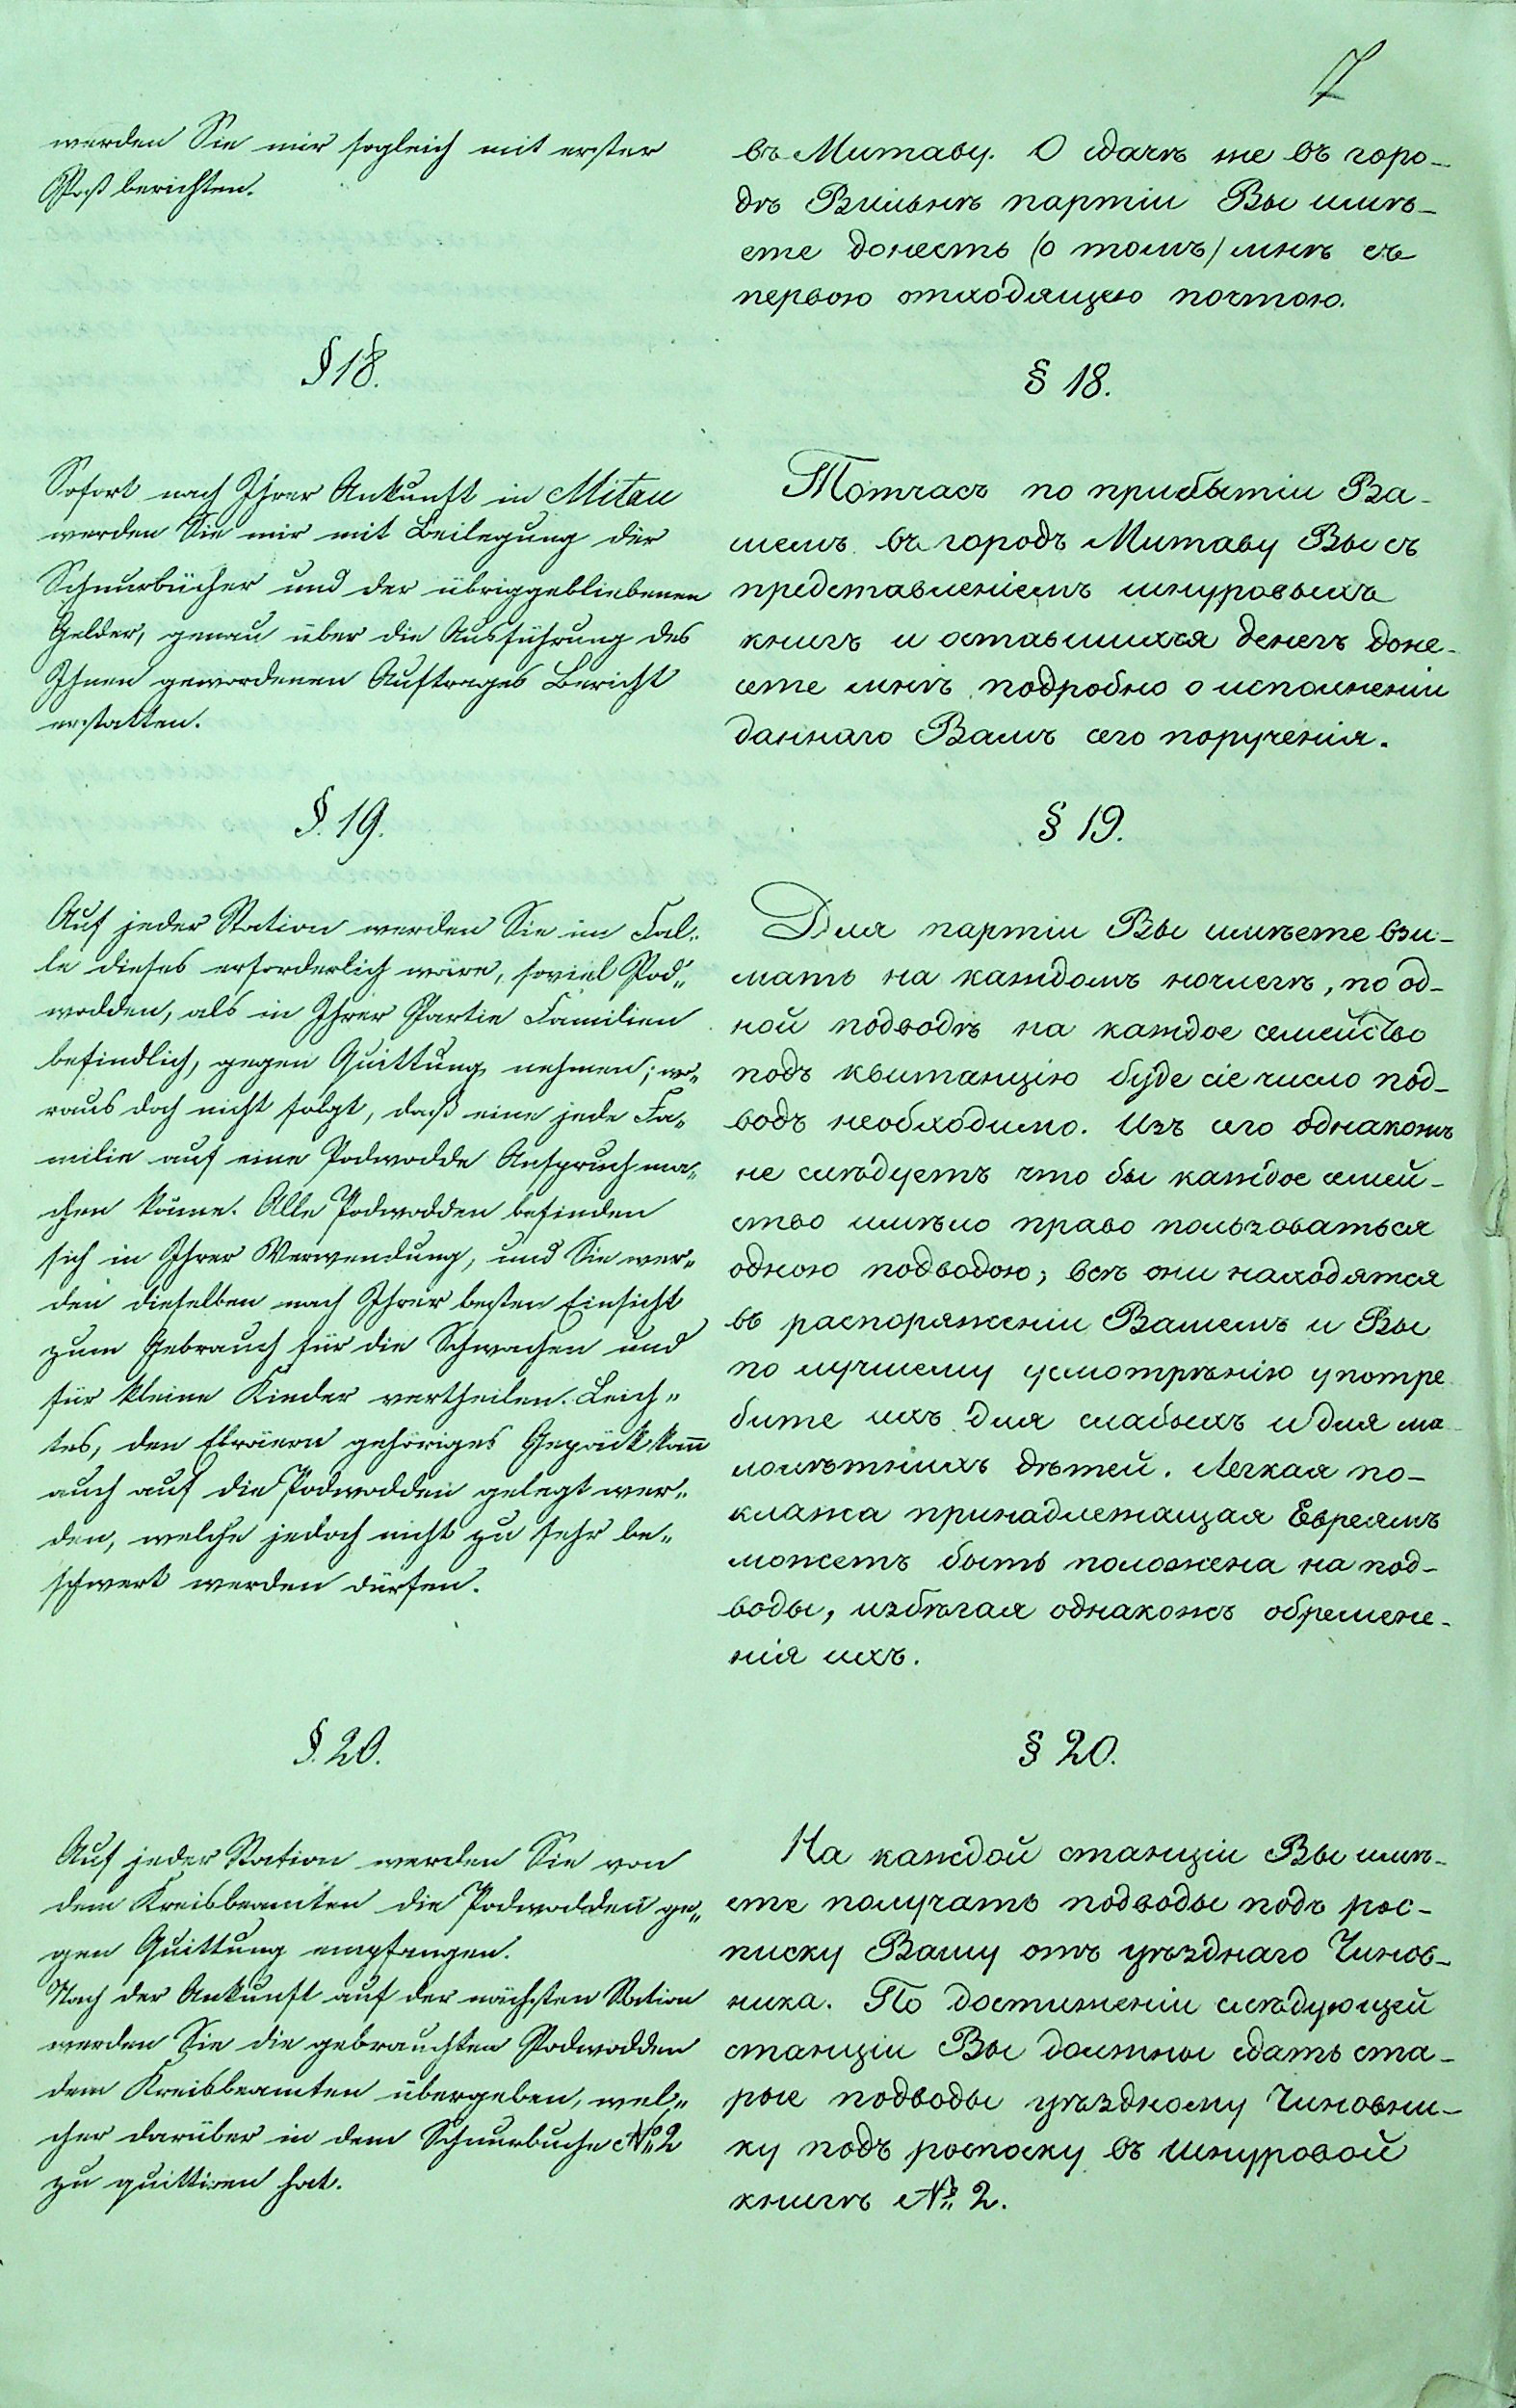 7
werden Sie mir sogleich mit erster
Post berichten.
§ 18.
Sofort nach Ihrer Ankunft in Mitau
werden Sie mir mit Beilegung der
Schnurbücher und der übriggebliebenen
Gelder, genau über die Ausführung des
Ihnen gewordenen Auftrages Bericht
erstatten.
§. 19.
Auf jeder Station werden Sie im Fal„
le dieses erforderlich wäre, soviel Pod„
wodden, als in Ihrer Partie Familien
befindlich, gegen Quittung nehmen; wo„
raus doch nicht folgt, daß eine jede Fa„
milie auf eine Podwodde Anspruch ma„
chen könne. Alle Podwodden befinden
sich in Ihrer Verwendung, und Sie wer„
den dieselben nach Ihrer besten Einsicht
zum Gebrauch für die Schwachen und
für kleine Kinder vertheilen. Leich„
tes, den Ebräern gehöriges Gepäck kann
auch auf die Podwodden gelegt wer„
den, welche jedoch nicht zu sehr be„
schwert werden dürfen.
§. 20.
Auf jeder Station werden Sie von
dem Kreisbeamten die Podwodden ge„
gen Quittung empfangen.
Nach der Ankunft auf der nächsten Station
werden Sie die gebrauchten Podwodden
dem Kreisbeamten übergeben, wel„
cher darüber in dem Schnurbuche № 2
zu quittiren hat.
въ Митаву. О сдачѣ же въ горо-
дѣ Вильнѣ партіи Вы имѣ-
ете донесть (о томъ) мнѣ съ
первою отходящею почтою.
§ 18.
Тотчасъ по прибытіи Ва-
шемъ въ городъ Митаву Вы съ
представленіемъ шнуровыхъ
книгъ и оставшихся денегъ доне-
сете мнѣ подробно о исполненіи
даннаго Вамъ сего порученія.
§ 19.
Для партіи Вы имѣете взи-
мать на каждомъ ночлегѣ, по од-
ной подводѣ на каждое семейство
подъ квитанцію буде сіе число под-
водъ необходимо. Изъ сего однакожъ
не слѣдуетъ что бы каждое семей-
ство имѣло право пользоваться
одною подводою; всѣ они находятся
въ распоряженіи Вашемъ и Вы
по лучшему усмотрѣнію употре
бите ихъ для слабыхъ и для ма-
лолѣтнихъ дѣтей. Легкая по-
клажа принадлежащая Евреямъ
можетъ быть положена на под-
воды, избѣгая однакожъ обремене-
нія ихъ.
§ 20.
На каждой станціи Вы имѣ-
ете получать подводы подъ рос-
писку Вашу отъ уѣзднаго Чинов-
ника. По достиженіи слѣдующей
станціи Вы должны сдать ста-
рые подводы уѣздному Чиновни-
ку подъ росписку въ шнуровой
книгѣ № 2.